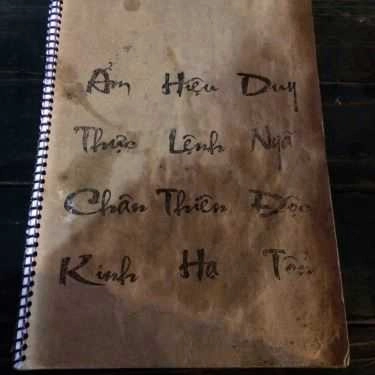 Ẩm Hiệu Duy
Thực Lệnh Ngã
Chân Thiên Độc
Kinh Hạ Tôn